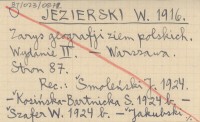 JEZIERSKI W. 1916.
Zarys geografji ziem polskich.
Wydanie II. – Warszawa.
Stron 87.
Rec.: Smoleński J. 1924.
– Kosińska-Bartnicka S. 1924 b. –
Szafer W. 1924 b. – Jakubski